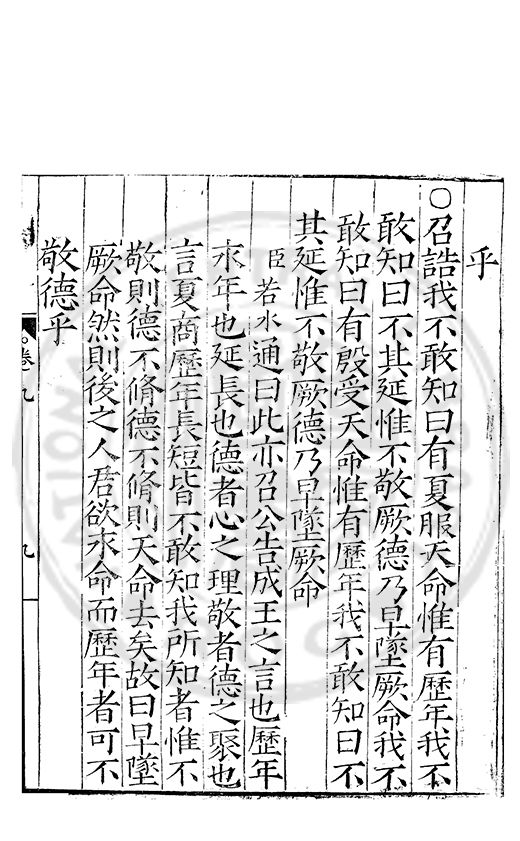 乎
○召誥我不敢知曰有夏服天命惟有歷年我不
敢知曰不其延惟不敬厥德乃早墜厥命我不
敢知曰有殷受天命惟有歷年我不敢知曰不
其延惟不敬厥德乃早墜厥命
臣若水通曰此亦召公告成王之言也歷年
永年也延長也德者心之理敬者德之聚也
言夏商歷年長短皆不敢知我所知者惟不
敬則德不脩德不脩則天命去矣故曰早墜
厥命然則後之人君欲求命而歷年者可不
敬德乎
卷九
九